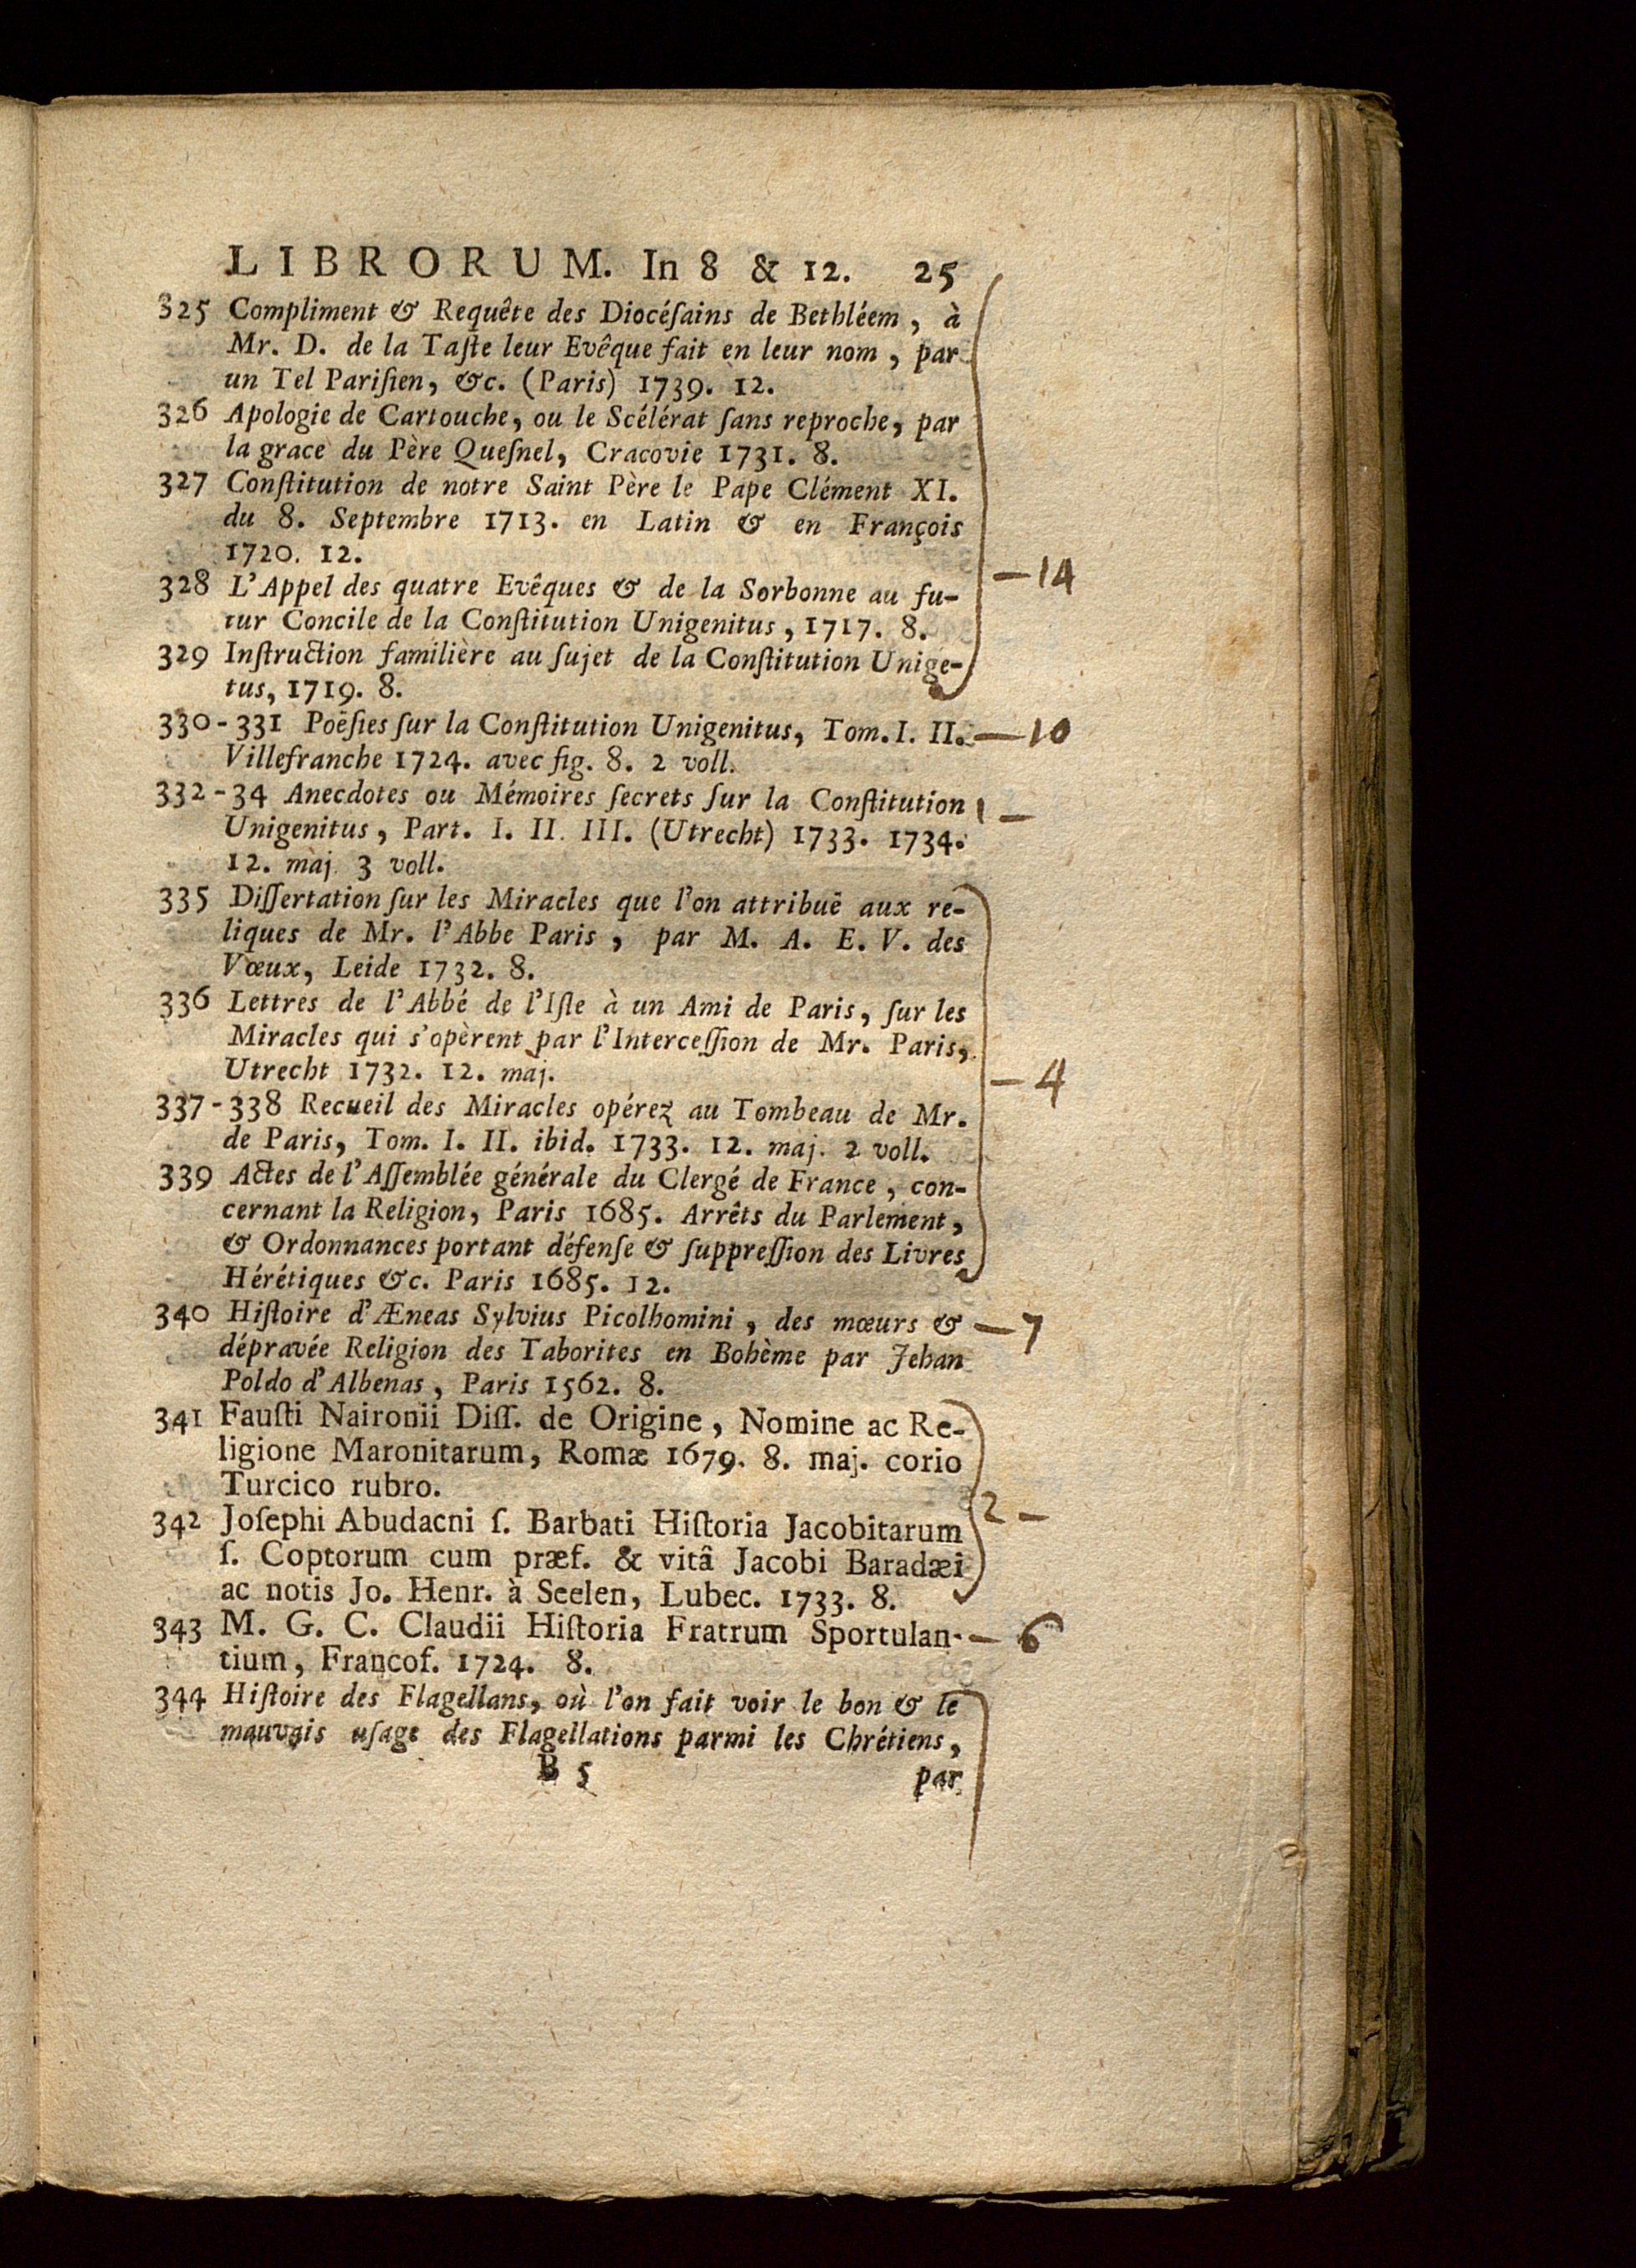 LIBRORUM. In 8 & 12. 25
325 Compliment & Requête des Diocéſains de Bethléem, à
Mr. D. de la Taſte leur Evêque fait en leur nom, par
un Tel Pariſien, &c. (Paris) 1739. 12.
326 Apologie de Cartouche, ou le Scélérat ſans reproche, par
la grace du Père Queſnel, Cracovie 1731. 8.
327 Conſtitution de notre Saint Père le Pape Clément XI.
du 8. Septembre 1713. en Latin & en François
1720. 12.
328 L'Appel des quatre Evêques & de la Sorbonne au fu-
tur Concile de la Conſtitution Unigenitus, 1717. 8.
— 14
329 Inſtruction familière au ſujet de la Conſtitution Unige-
tus, 1719. 8.
330-331 Poëſies ſur la Conſtitution Unigenitus, Tom. I. II. — 10
Villefranche 1724. avec fig. 8. 2 voll.
332-34 Anecdotes ou Mémoires ſecrets ſur la Conſtitution 1 —
Unigenitus, Part. I. II. III. (Utrecht) 1733. 1734.
12. maj. 3 voll.
335 Diſſertation ſur les Miracles que l'on attribuë aux re-
liques de Mr. l'Abbe Paris, par M. A. E. V. des
Vœux, Leide 1732. 8.
336 Lettres de l'Abbé de l'Iſle à un Ami de Paris, ſur les
Miracles qui s'opèrent par l'Interceſſion de Mr. Paris,
Utrecht 1732. 12. maj.
— 4
337-338 Recueil des Miracles opérez au Tombeau de Mr.
de Paris, Tom. I. II. ibid. 1733. 12. maj. 2 voll.
339 Actes de l'Aſſemblée générale du Clergé de France, con-
cernant la Religion, Paris 1685. Arrêts du Parlement,
& Ordonnances portant défenſe & ſuppreſſion des Livres
Hérétiques &c. Paris 1685. 12.
340 Hiſtoire d'Æneas Sylvius Picolhomini, des mœurs & — 7
dépravée Religion des Taborites en Bohème par Jehan
Poldo d'Albenas, Paris 1562. 8.
341 Fauſti Naironii Diſſ. de Origine, Nomine ac Re-
ligione Maronitarum, Romæ 1679. 8. maj. corio
Turcico rubro.
2 —
342 Joſephi Abudacni ſ. Barbati Hiſtoria Jacobitarum
ſ. Coptorum cum præf. & vitâ Jacobi Baradæi
ac notis Jo. Henr. à Seelen, Lubec. 1733. 8.
343 M. G. C. Claudii Hiſtoria Fratrum Sportulan- — 6
tium, Francof. 1724. 8.
344 Hiſtoire des Flagellans, où l'on fait voir le bon & le
mauvais uſage des Flagellations parmi les Chrétiens,
B 5 par